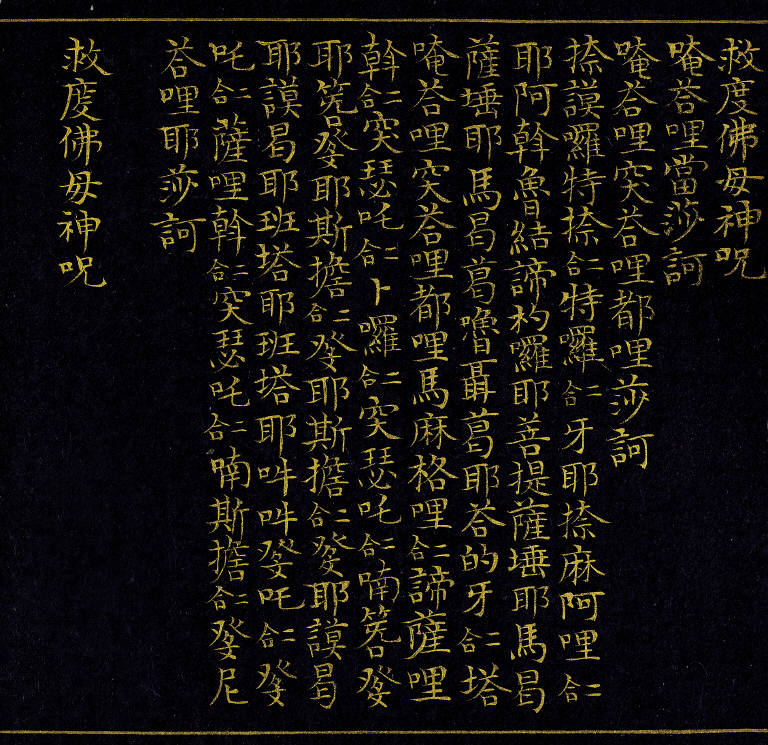 救度佛母神呪
唵荅哩當莎訶
唵荅哩突荅哩都哩莎訶
捺謨囉特捺合二特囉合二牙耶捺麻阿哩合二
耶阿斡魯結諦杓囉耶菩提薩埵耶馬曷
薩埵耶馬曷葛嚕聶葛耶荅的牙合二塔
唵荅哩突荅哩都哩馬麻格哩合二諦薩哩
斡合二突瑟吒合二卜囉合二突瑟吒合二喃筅發
耶筅發耶斯擔合二發耶斯擔合二發耶謨曷
耶謨曷耶班塔耶班塔耶吽吽發吒合二發
吒合二薩哩斡合二突瑟吒合二喃斯擔合二發尼
荅哩耶莎訶
救度佛母神呪